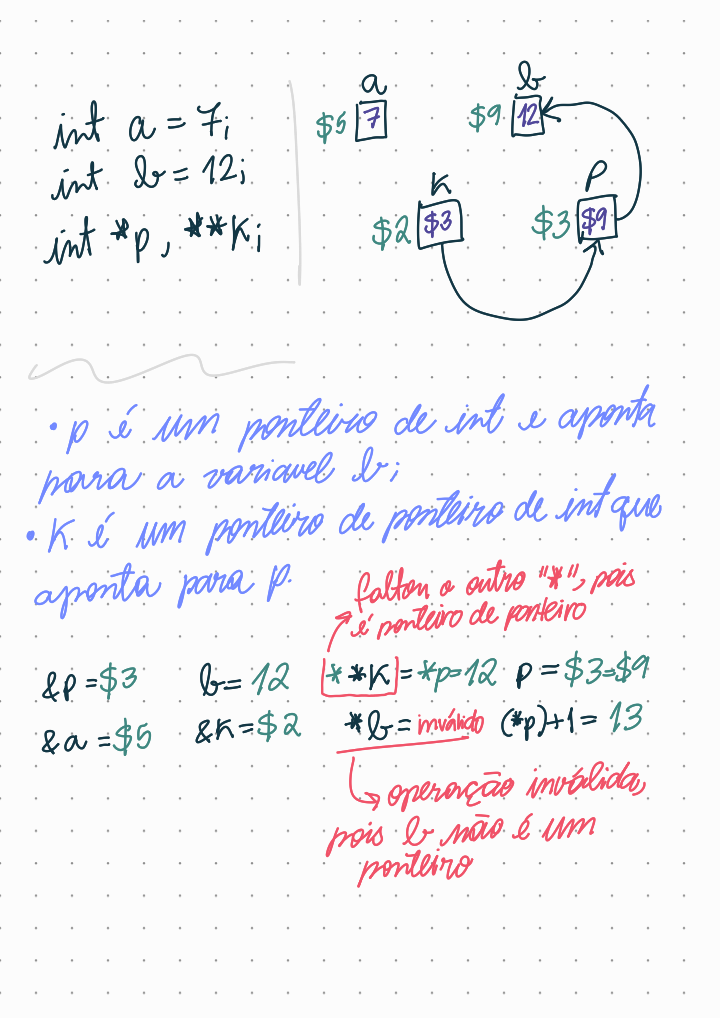 int a = 7;
int b = 12;
int *p, **k;
a
$5 7
b
$9 12
k
$2 $3
p
$3 $9
• p é um ponteiro de int e aponta
para a variavel b;
• k é um ponteiro de ponteiro de int que
aponta para p.
faltou o outro "*", pois
é ponteiro de ponteiro
&p = $3 b = 12 **k = *p = 12 p = $3→$9
&a = $5 &k = $2 *b = inválido (*p)+1 = 13
operação inválida,
pois b não é um
ponteiro